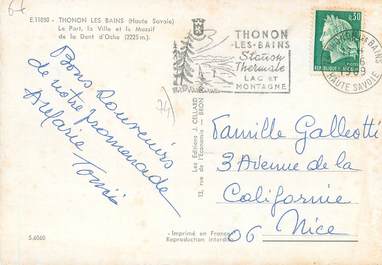 6-€
E.11050 - THONON LES BAINS (Haute Savoie)
Le Port, la Ville et le Massif
de la Dent d'Oche (2225 m.)
THONON
-LES-BAINS
Station
Thermale
LAC ET
MONTAGNE
0,30
THONON LES BAINS
HAUTE SAVOIE
74
Les Editions J. CELLARD
BRON
Bons Souvenirs
de notre promenade
Famille Galleotti
3 Avenue de la
Californie
06 Nice
S.6060
-Imprimé en France-
Reproduction interdite